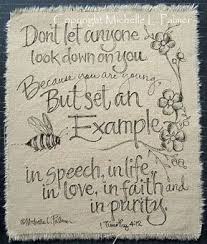 Copyright Michelle L. Palmer
Don't let anyone
look down on you
Because you are young,
But set an
Example
in speech, in life,
in love, in faith and
in purity.
©Michelle L. Palmer
1 Timothy 4:12